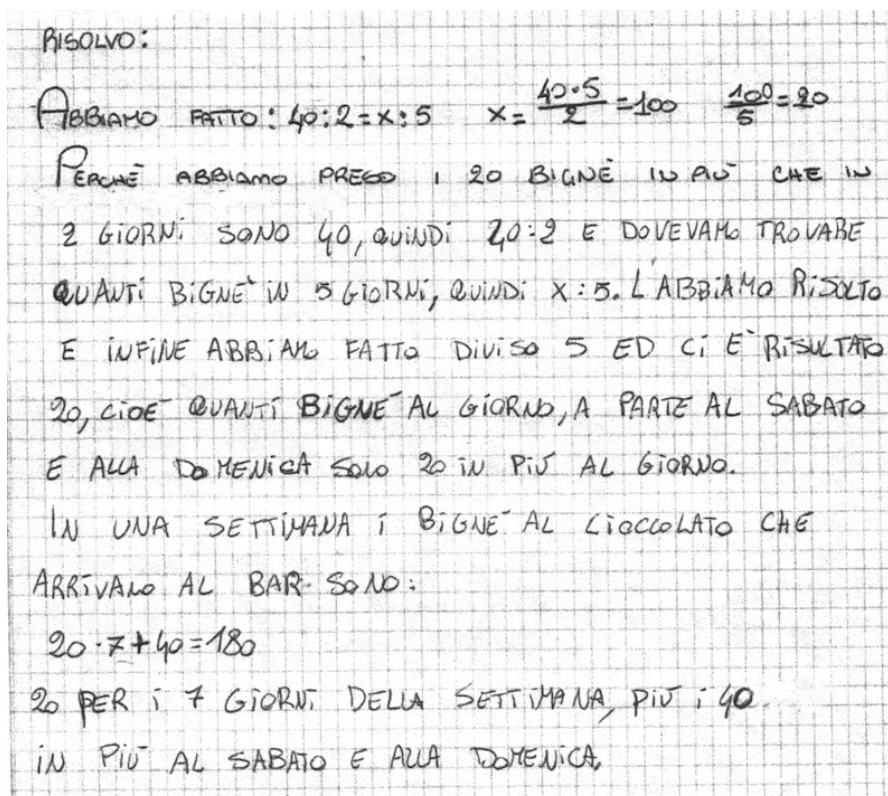 RISOLVO:
ABBIAMO FATTO: 40:2=x:5 x= 40·5/2 =100 100/5=20
PERCHÉ ABBIAMO PRESO I 20 BIGNÉ IN PIÙ CHE IN
2 GIORNI SONO 40, QUINDI 40:2 E DOVEVAMO TROVARE
QUANTI BIGNÉ IN 5 GIORNI, QUINDI X:5. L'ABBIAMO RISOLTO
E INFINE ABBIAMO FATTO DIVISO 5 ED CI È RISULTATO
20, CIOÉ QUANTI BIGNÉ AL GIORNO, A PARTE AL SABATO
E ALLA DOMENICA SOLO 20 IN PIÙ AL GIORNO.
IN UNA SETTIMANA I BIGNÉ AL CIOCCOLATO CHE
ARRIVANO AL BAR SONO:
20·7+40=180
20 PER I 7 GIORNI DELLA SETTIMANA, PIÙ I 40
IN PIÙ AL SABATO E ALLA DOMENICA.